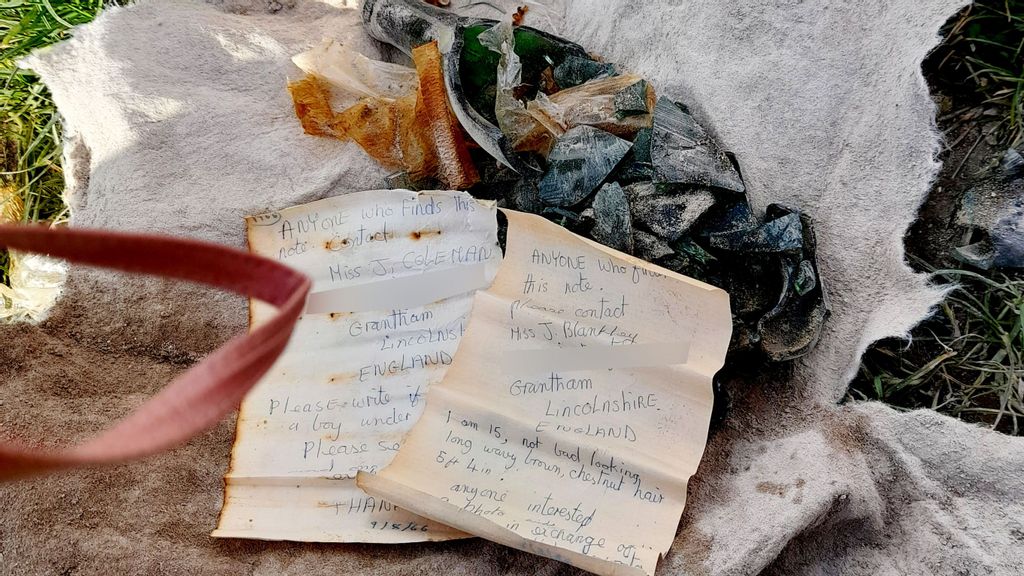 ANYONE who finds this
note contact
Miss J. COLEMAN
Grantham
LINCOLNSH
ENGLAND
Please write if
a boy under
Please se
THAN
9/8/66
ANYONE who
this note.
please contact
Miss J. Blankley
Grantham
LINCOLNSHIRE.
ENGLAND
I am 15, not bad looking,
long wavy brown, chestnut hair
5ft 4in.
anyone interested
a photo in exchange of